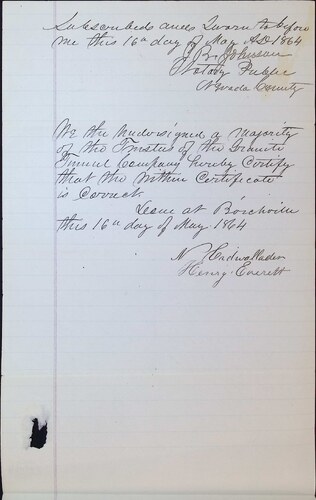 Subscribed and Sworn to before
me this 16th day of May AD 1864
J. B. Johnson
Notary Public
Nevada County
We the undersigned a Majority
of the Trustees of the Granite
Tunnel Company hereby Certify
that the Within Certificate
is Correct.
at
this 16th day of May 1864
N
Henry Everett